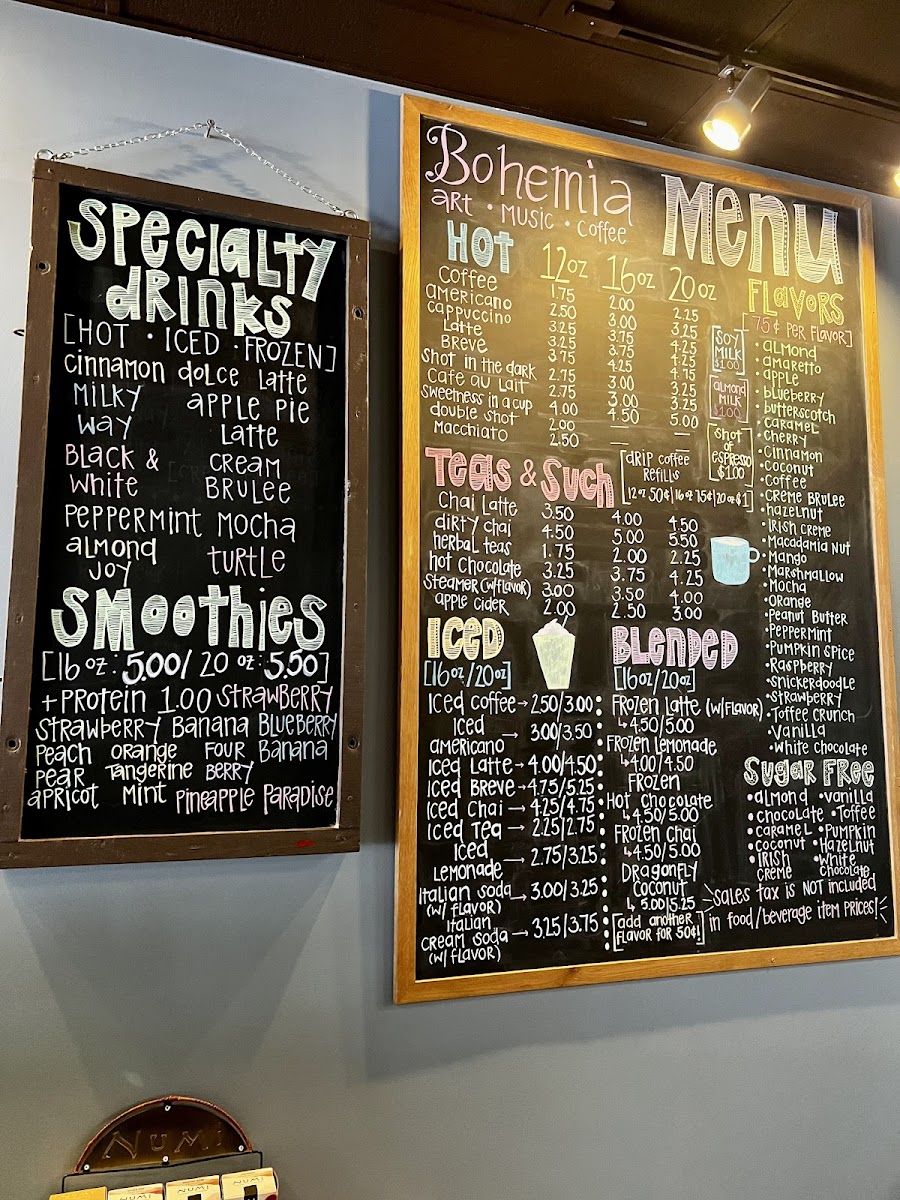 SPECIALTY
DRINKS
[HOT • ICED • FROZEN]
Cinnamon dolce Latte
MILKY WAY
APPLE PIE LATTE
BLACK & White
CREAM BRULEE
PEPPERMINT MOCHA
almond JOY
TURTLE
SMOOTHIES
[16 oz: 5.00/ 20 oz: 5.50]
+PROTEIN 1.00 STRAWBERRY
STRAWBERRY BANANA BLUEBERRY
PEACH ORANGE FOUR BANANA
PEAR TANGERINE BERRY
APRICOT MINT PINEAPPLE PARADISE
Bohemia
ART • MUSIC • Coffee
MENU
HOT 12oz 16oz 20oz
Coffee 1.75 2.00 2.25
americano 2.50 3.00 3.25
cappuccino 3.25 3.75 4.25
Latte 3.25 3.75 4.25
Breve 3.75 4.25 4.75
Shot in the dark 2.75 3.25
Cafe au Lait 2.75 3.00 3.25
Sweetness in a cup 4.00 4.50 5.00
double shot 2.00 — —
Macchiato 2.50 — —
SOY MILK $1.00
almond MILK $1.00
SHOT OF ESPRESSO $1.00
Teas & Such
[drip coffee
Refills
12oz 50¢|16oz 75¢|20oz $1]
Chai Latte 3.50 4.00 4.50
dirty chai 4.50 5.00 5.50
herbal teas 1.75 2.00 2.25
hot chocolate 3.25 3.75 4.25
Steamer (w/flavor) 3.00 3.50 4.00
apple cider 2.00 2.50 3.00
ICED
[16oz/20oz]
Iced Coffee → 2.50/3.00
Iced americano → 3.00/3.50
Iced Latte → 4.00/4.50
Iced Breve → 4.75/5.25
Iced Chai → 4.25/4.75
Iced Tea → 2.25/2.75
Iced Lemonade → 2.75/3.25
Italian Soda (w/ flavor) → 3.00/3.25
Italian cream soda (w/ flavor) → 3.25/3.75
Blended
[16oz/20oz]
Frozen Latte (w/flavor)
↳ 4.50/5.00
Frozen Lemonade
↳ 4.00/4.50
Frozen
Hot Chocolate
↳ 4.50/5.00
Frozen Chai
↳ 4.50/5.00
Dragonfly
Coconut
↳ 5.00/5.25
[add another
flavor for 50¢!]
FLAVORS
[75¢ PER FLAVOR]
• almond
• amaretto
• apple
• blueberry
• butterscotch
• caramel
• cherry
• Cinnamon
• Coconut
• Coffee
• Creme Brulee
• hazelnut
• Irish creme
• Macadamia Nut
• Mango
• Marshmallow
• Mocha
• Orange
• Peanut Butter
• Peppermint
• Pumpkin Spice
• Raspberry
• Snickerdoodle
• Strawberry
• Toffee Crunch
• Vanilla
• White chocolate
Sugar Free
• almond • vanilla
• chocolate • Toffee
• caramel • Pumpkin
• coconut • Hazelnut
• Irish creme • White chocolate
Sales tax is NOT included
in food/beverage item prices!
NUMI
NUMI
NUMI
NUMI